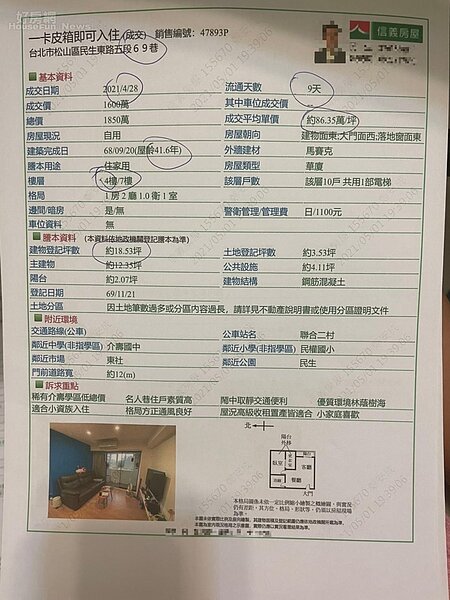 好房網
HouseFun News
一卡皮箱即可入住(成交) 銷售編號: 47893P
台北市松山區民生東路五段69巷
信義房屋
基本資料
成交日期 2021/4/28 流通天數 9天
成交價 1600萬 其中車位成交價 --
總價 1850萬 成交平均單價 約86.35萬/坪
房屋現況 自用 房屋朝向 建物面東;大門面西;落地窗面東
建築完成日 68/09/20(屋齡41.6年) 外牆建材 馬賽克
謄本用途 住家用 房屋類型 華廈
樓層 4樓/7樓 該層戶數 該層10戶 共用1部電梯
格局 1房2廳1.0衛1室
邊間/暗房 是/無 警衛管理/管理費 日/1100元
車位資料 無
謄本資料 (本資料依地政機關登記謄本為準)
建物登記坪數 約18.53坪 土地登記坪數 約3.53坪
主建物 約12.35坪 公共設施 約4.11坪
陽台 約2.07坪 建物結構 鋼筋混凝土
登記日期 69/11/21
土地分區 因土地筆數過多或分區內容過長，請詳見不動產說明書或使用分區證明文件
附近環境
交通路線(公車) 公車站名 聯合二村
鄰近中學(非指學區) 介壽國中 鄰近小學(非指學區) 民權國小
鄰近市場 東社 鄰近公園 民生
門前道路寬 約12(m)
訴求重點
稀有介壽學區低總價 名人巷住戶素質高 鬧中取靜交通便利 優質環境林蔭樹海
適合小資族入住 格局方正通風良好 屋況高級收租置產皆適合 小家庭喜歡
北
陽台
外移
陽台
臥室
客廳
餐廳
大門
本格局圖係未依一定比例縮小繪製之概繪圖，與實況
仍有差距，其方位、格局、形狀等，仍須以房屋現場
為準。